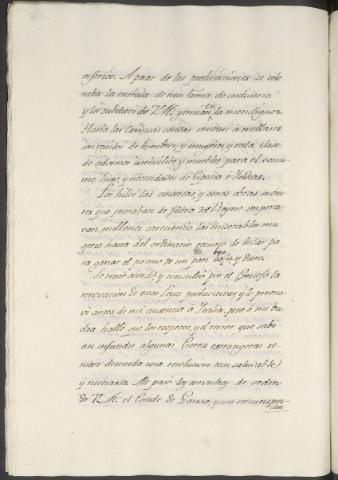 inferior. A pesar de las prohiviciones se tole
raba la entrada de mercaderias de industria
y los subditos de V.M. gemian en la mendiguez.
Hasta las camisas cosidas venian à millares
con vestidos de hombres, y mugeres y toda clase
de adornos utensilios y muebles para el consu
mo, lujo, y necesidades de España è Indias.
Los hilos las cintas y otras obras meno
res que entraban de fuera del Reyno importa
van millones careciendo las miserables mu
geres hasta del ordinario recurso de hilar pa
ra ganar el precio de un pan baxo y duro.
De nuevo acordó y consultó pues el Consejo la
renovacion de esas Leyes prohivitivas, y lo preve
ni antes de mi ausencia à Italia, pero à mi bu
elta hallé que los respetos, y el temor que sabi
an infundir algunas Cortes extrangeras te
nian detenida una resolucion tan saludable
y necesaria. Me pasó las consultas de orden
de V.M. el Conde de Gausa, y con circunspe-
ccion